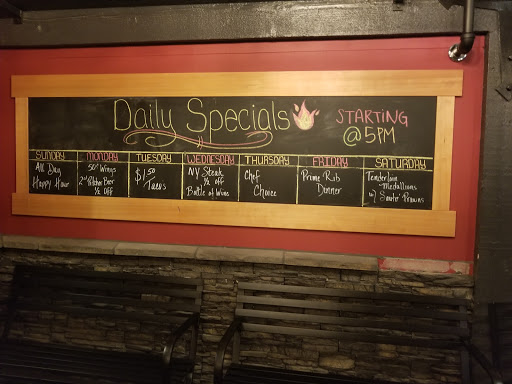 Daily Specials
STARTING
@5PM
SUNDAY
All Day
Happy Hour
MONDAY
50¢ Wings
2nd Pitcher Beer
½ off
TUESDAY
$1.50
Tacos
WEDNESDAY
NY Steak
½ off
Bottle of Wine
THURSDAY
Chef
Choice
FRIDAY
Prime Rib
Dinner
SATURDAY
Tenderloin
Medallions
w/ Prawns